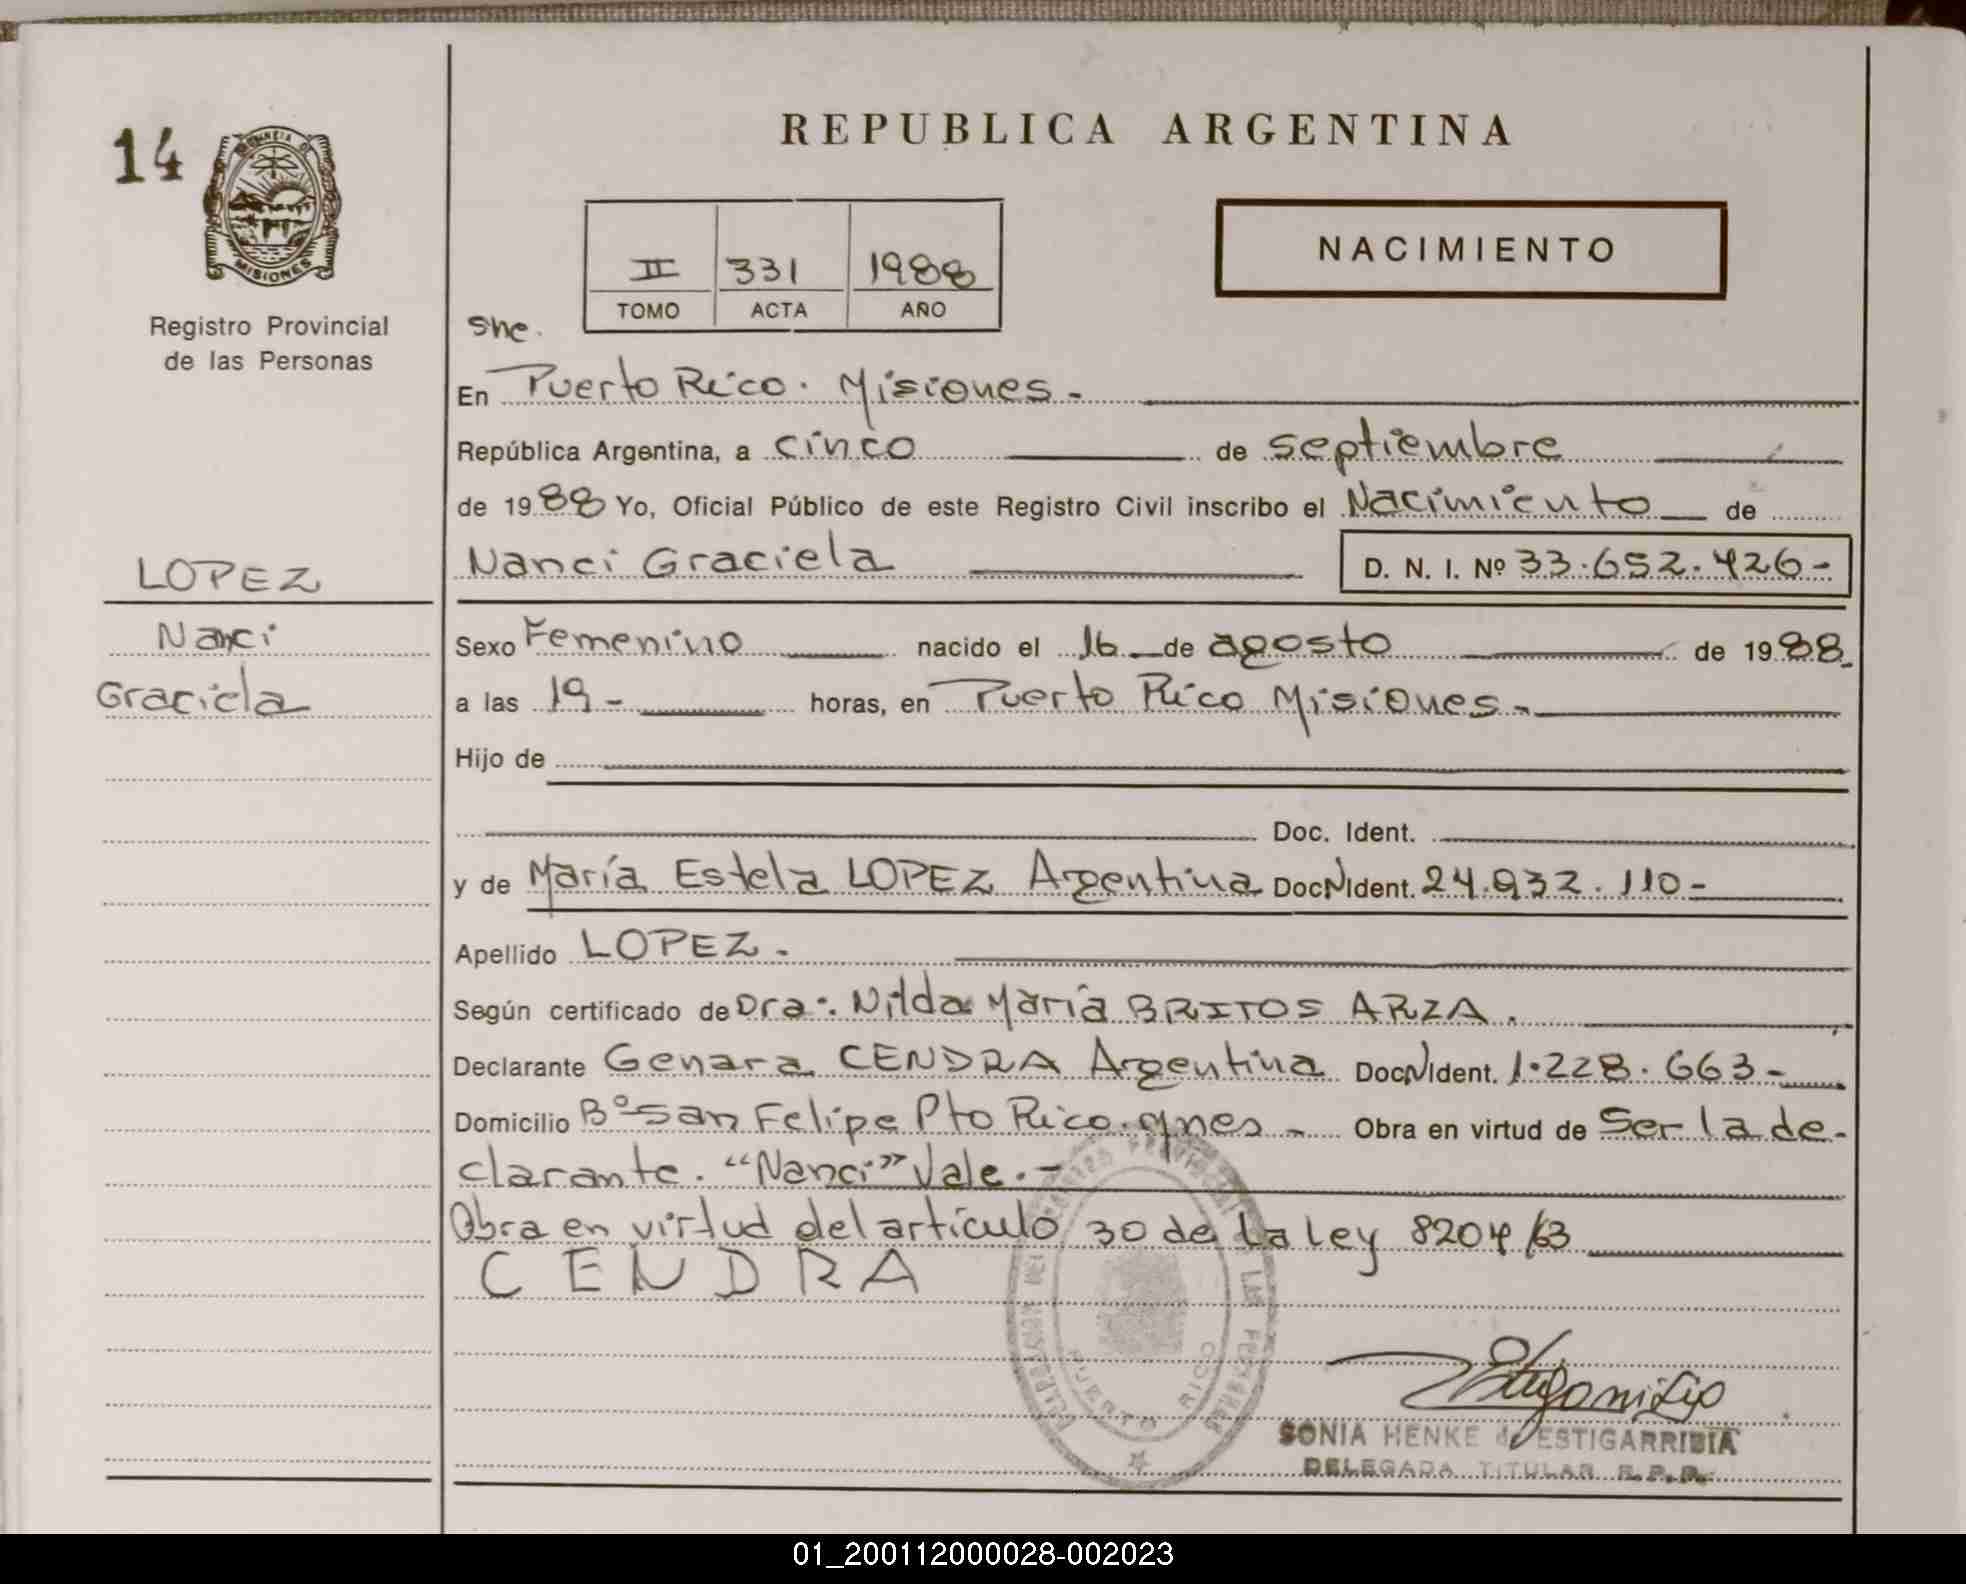 REPUBLICA ARGENTINA
14
PROVINCIA DE
MISIONES
Registro Provincial
de las Personas
II 331 1988
TOMO ACTA AÑO
NACIMIENTO
She.
En Puerto Rico. Misiones.-
República Argentina, a cinco de septiembre
de 1988 Yo, Oficial Público de este Registro Civil inscribo el Nacimiento de
Nanci Graciela D. N. I. Nº 33.652.426-
LOPEZ
Nanci
Graciela
Sexo Femenino nacido el 16 de agosto de 1988
a las 19- horas, en Puerto Rico Misiones.-
Hijo de
Doc. Ident.
y de María Estela LOPEZ Argentina Doc.N Ident. 24.932.110-
Apellido LOPEZ.
Según certificado de Dra. Nilda María BRITOS ARZA.
Declarante Genara CENDRA Argentina Doc.N Ident. 1.228.663-
Domicilio Bº San Felipe Pto Rico. Mnes.- Obra en virtud de Ser la de-
clarante. "Nanci" Vale.-
Obra en virtud del artículo 30 de la Ley 8204/63
CENDRA
PUERTO RICO
SONIA HENKE de ESTIGARRIBIA
DELEGADA TITULAR R.P.P.
01_200112000028-002023